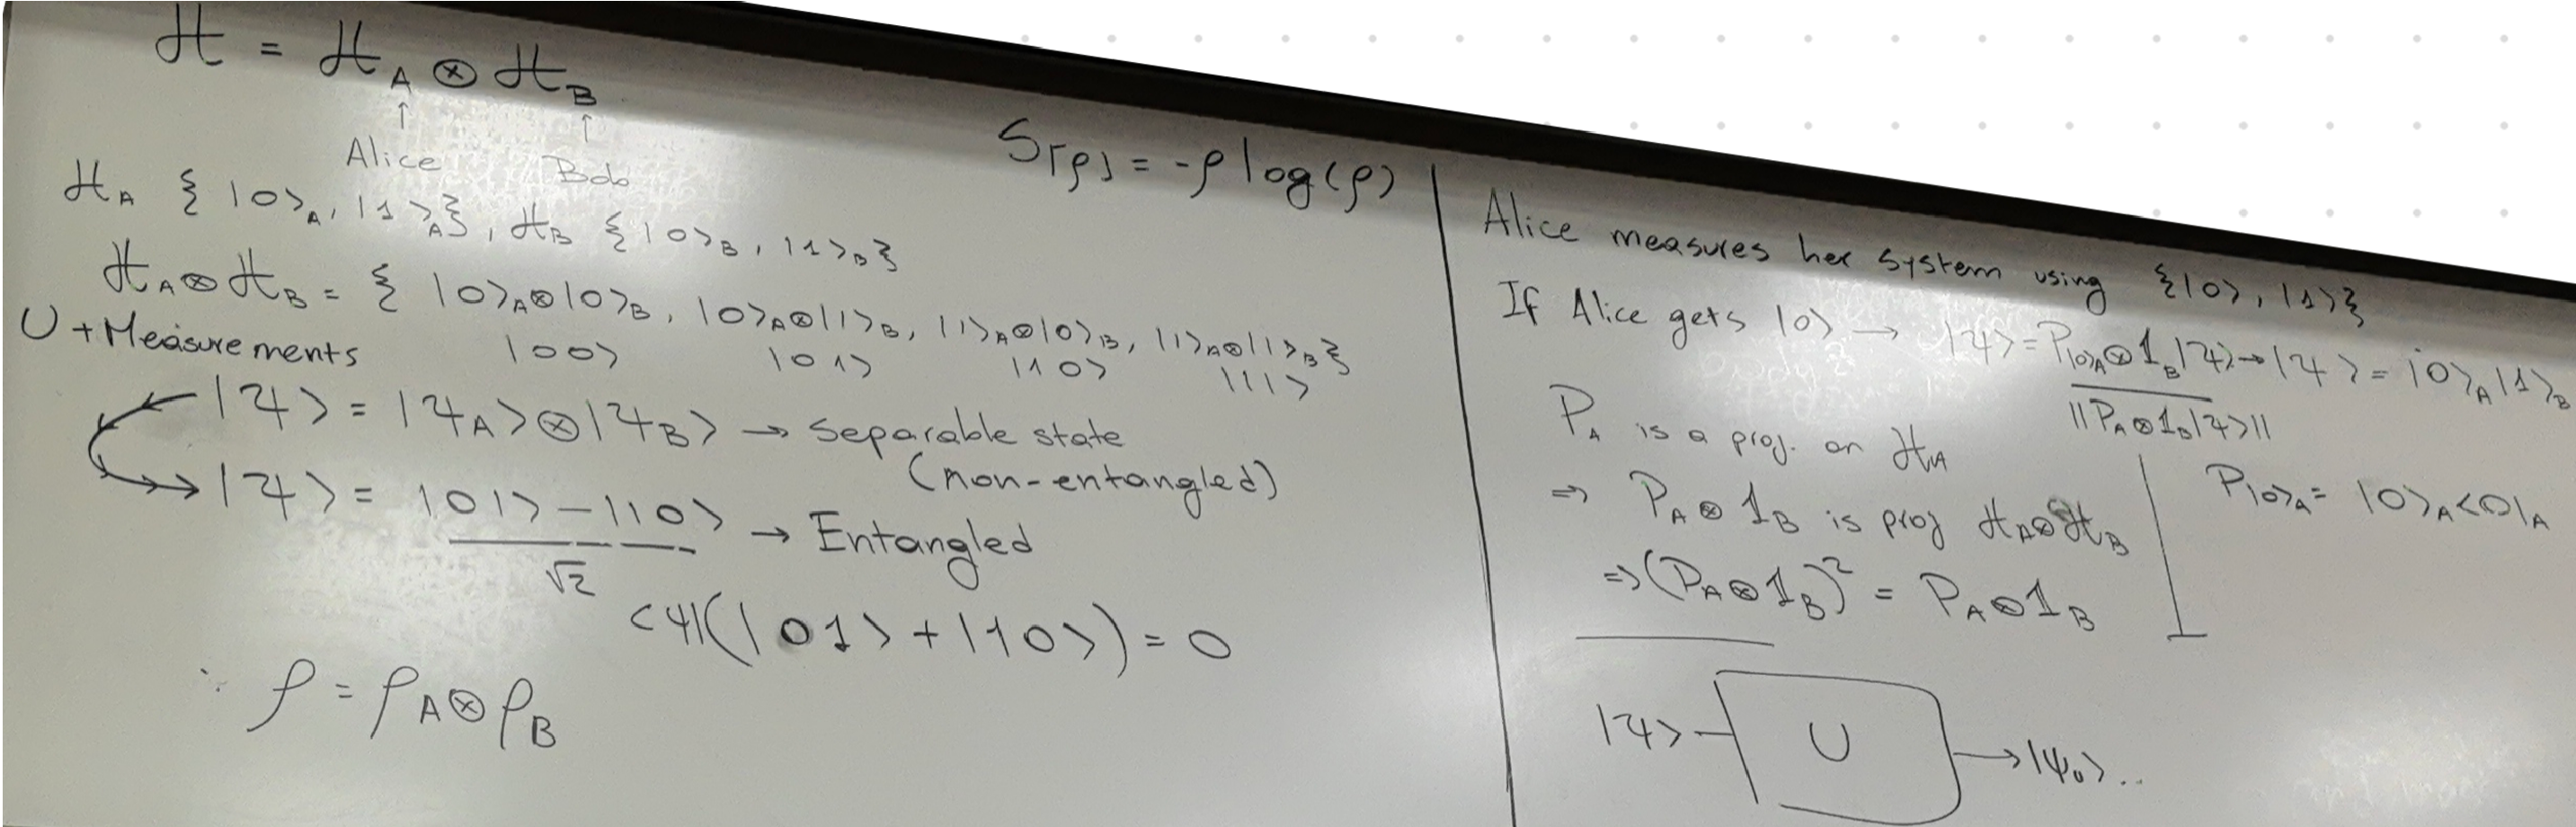 ℋ = ℋ_A ⊗ ℋ_B
↑ ↑
Alice Bob
ℋ_A {|0⟩_A, |1⟩_A}, ℋ_B {|0⟩_B, |1⟩_B}
ℋ_A⊗ℋ_B = {|0⟩_A⊗|0⟩_B, |0⟩_A⊗|1⟩_B, |1⟩_A⊗|0⟩_B, |1⟩_A⊗|1⟩_B}
|00⟩ |01⟩ |10⟩ |11⟩
U + Measurements
|ψ⟩ = |ψ_A⟩⊗|ψ_B⟩ → Separable state
(non-entangled)
|ψ⟩ = |01⟩ - |10⟩ → Entangled
√2
⟨ψ|(|01⟩ + |10⟩) = 0
ρ = ρ_A ⊗ ρ_B
S[ρ] = -ρ log(ρ)
Alice measures her system using {|0⟩, |1⟩}
If Alice gets |0⟩ → |ψ⟩ = P_|0⟩_A⊗1_B|ψ⟩ → |ψ⟩ = |0⟩_A|1⟩_B
||P_A⊗1_B|ψ⟩||
P_A is a proj. on ℋ_A
⇒ P_A⊗1_B is proj ℋ_A⊗ℋ_B
⇒ (P_A⊗1_B)² = P_A⊗1_B
P_|0⟩_A = |0⟩_A⟨0|_A
|ψ⟩ U → |ψ₀⟩..